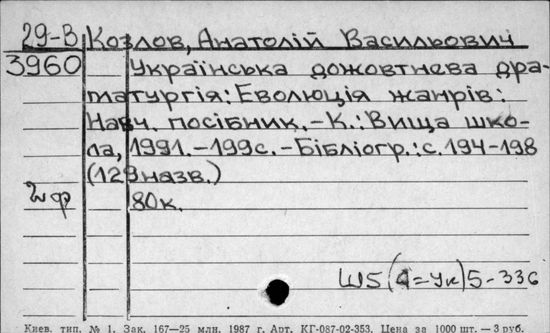 29-В Козлов, Анатолій Васильович
3960 Українська дожовтнева дра-
матургія: Еволюція жанрів:
Навч. посібник.-К.: Вища шко-
ла, 1991.-199с.-Бібліогр.: с. 194-198
(129 назв.)
80к.
Ш5(4=Ук)5-336
Киев. тип. № 1. Зак. 167—25 млн. 1987 г. Арт. КГ-087-02-353. Цена за 1000 шт. — 3 руб.